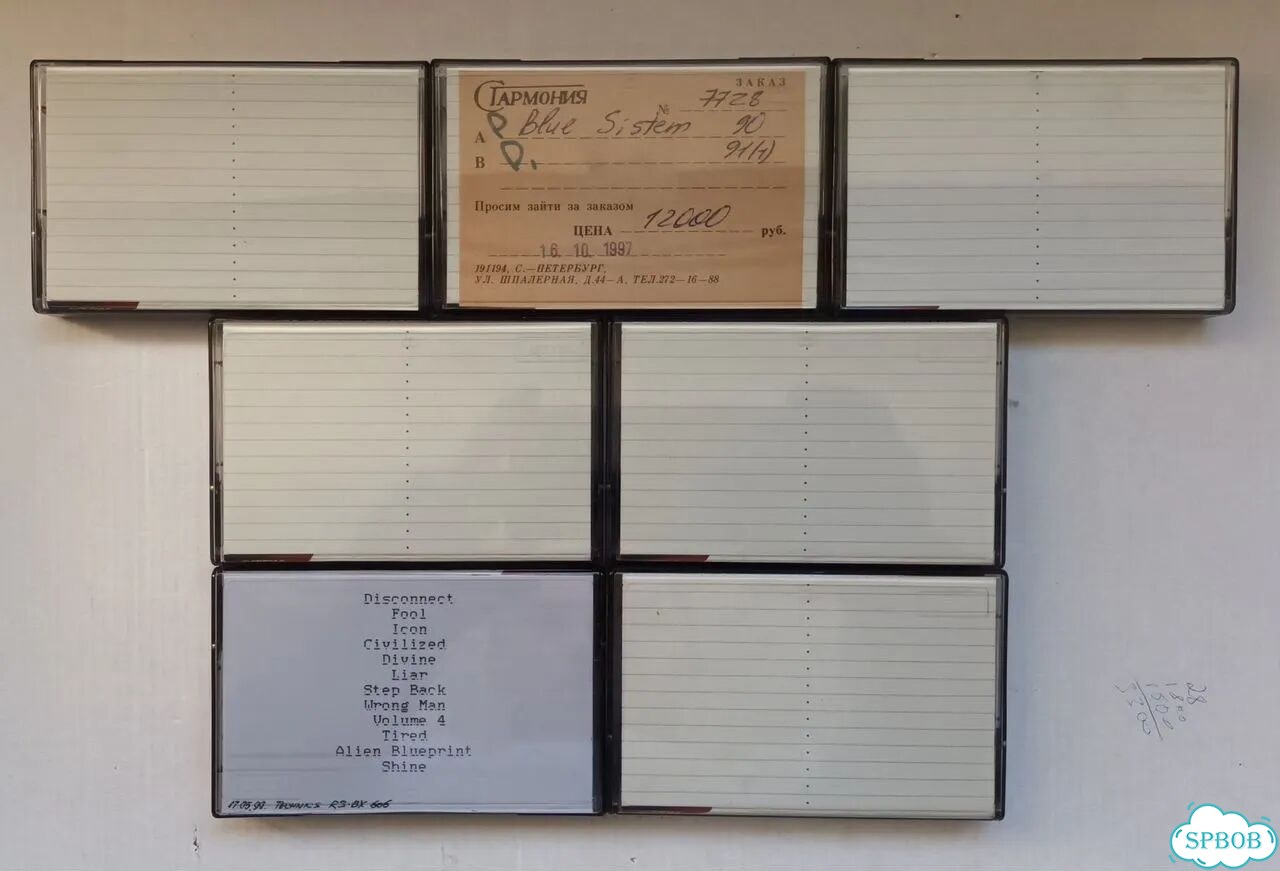 ЗАКАЗ
ГАРМОНИЯ
№ 7728
A Blue Sistem 90
B 91(н)
Просим зайти за заказом
ЦЕНА 12000 руб.
16. 10. 1997
191194, С.—ПЕТЕРБУРГ,
УЛ. ШПАЛЕРНАЯ, Д.44—А, ТЕЛ.272—16—88
Disconnect
Fool
Icon
Civilized
Divine
Liar
Step Back
Wrong Man
Volume 4
Tired
Alien Blueprint
Shine
Technics RS-BX 606
28
1800
1500
3300
SPBOB